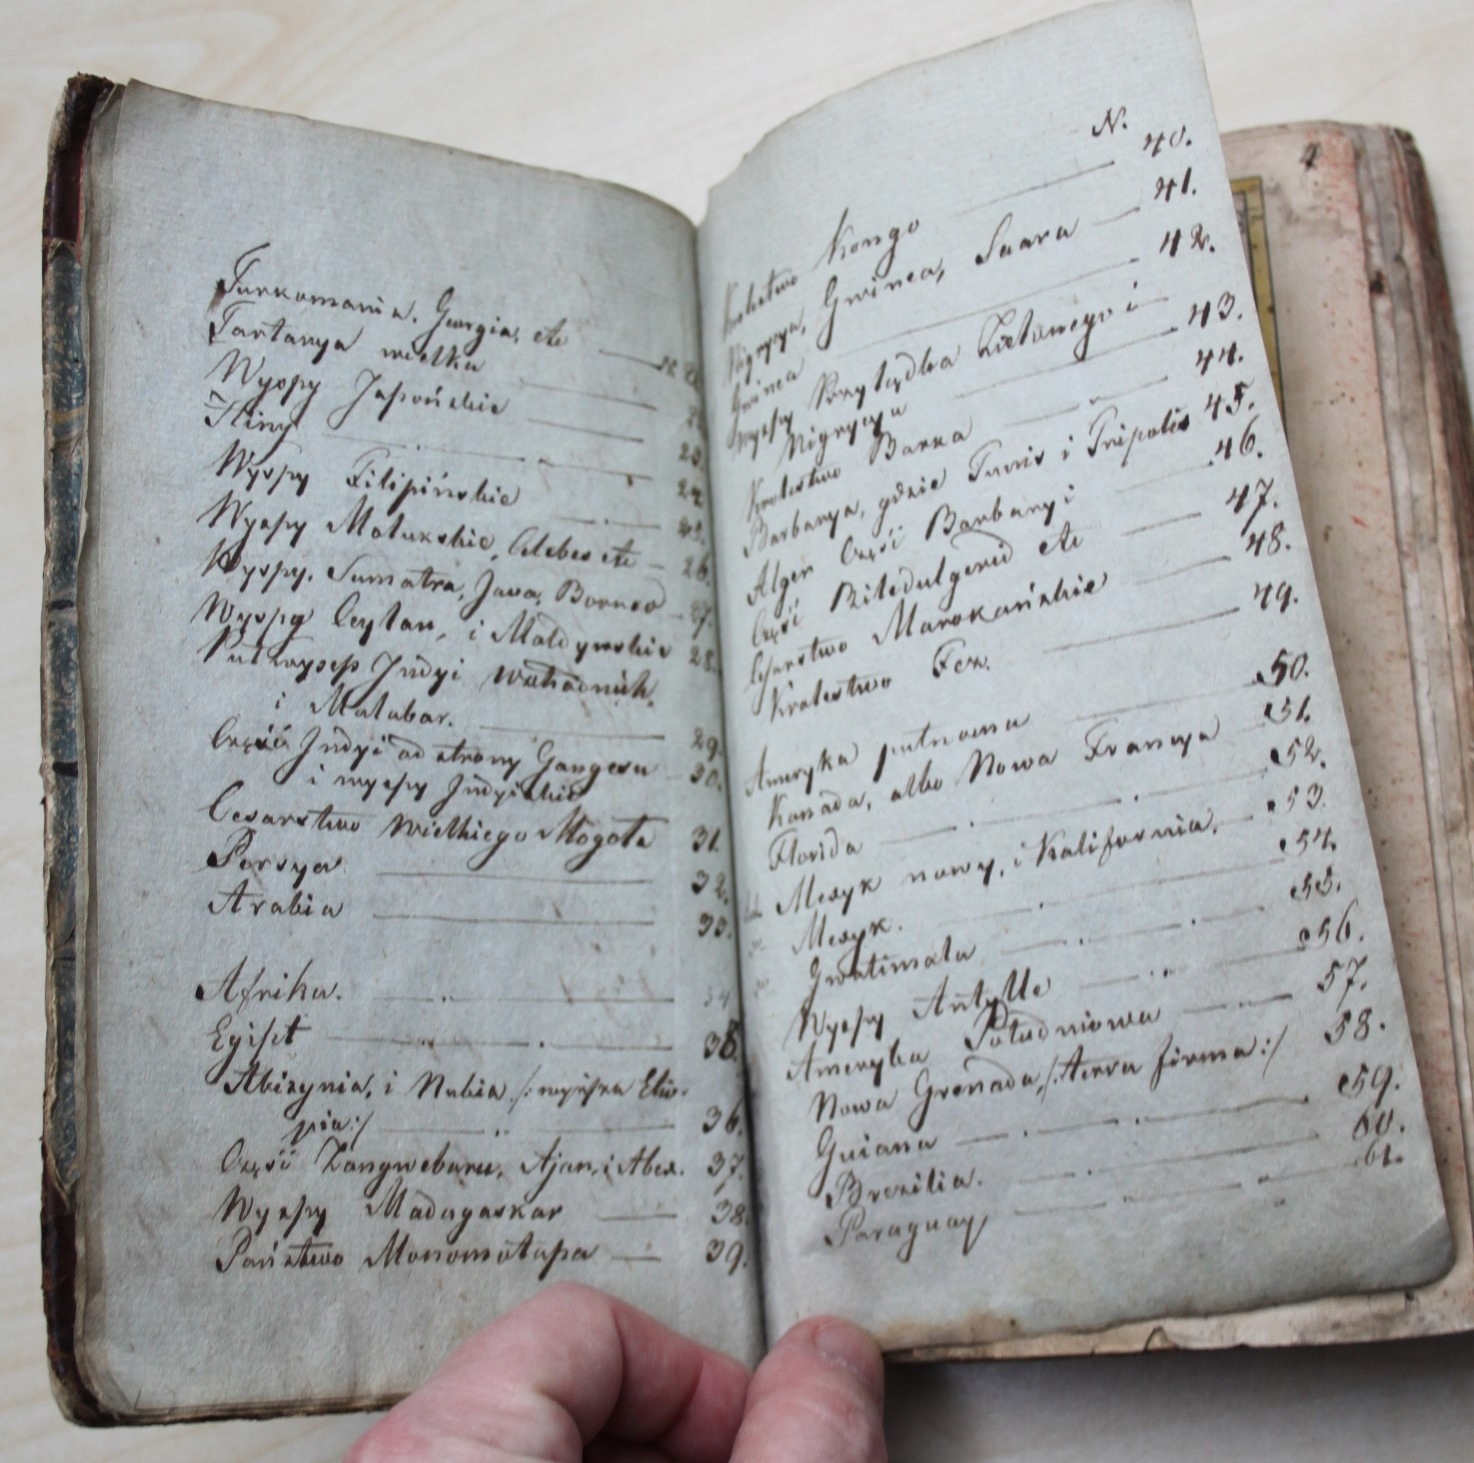 Turkomania. Georgia, etc
Tartarya wielka
Wyspy Japońskie
Hiny 24
Wyspy Filipińskie 25.
Wyspy Moluxkie, Celebes etc 26.
Wyspy, Sumatra, Java, Borneo 27.
Wyspy Ceylan, i Maldywskie 28.
Pułwysep Indyi
i Malabar. 29.
Część Indyi od strony Gangesu 30.
i wyspy Indyiskie
Cesarstwo Wielkiego Mogoła 31.
Persya 32.
Arabia 33.
Afrika. 34
Egipt 35.
Abisynia, i Nubia /: wyższa Etio-
pia:/ 36.
Część Zangwebaru, Ajan, i Abex. 37.
Wyspy Madagaskar 38.
Państwo Monomotapa 39.
N.
Krolestwo Kongo 40.
Nigrycya, Gwinea, Saara 41.
Gwinea 42.
Wyspy Przylądka Zielonego i
Nigrycya 43.
Krolestwo Barka 44.
Barbarya, gdzie Tunis i Tripolis 45.
Alger Część Barbaryi 46.
Część Biledulgerid etc 47.
Cesarstwo Marokańskie 48.
Krolestwo Fez. 49.
Ameryka pułnocna 50.
Kanada, albo Nowa Francya 51.
Florida 52.
Mexyk nowy, i Kalifornia. 53.
Mexyk. 54.
Gwatimala 55.
Wyspy Antylle 56.
Ameryka Południowa 57.
Nowa Grenada /:terra firma:/ 58.
Guiana 59.
Brezilia. 60.
Paraguay 61.